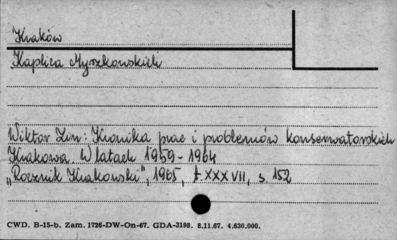 Kraków
Kaplica Myszkowskich
Wiktor Zin: Kronika prac i problemów konserwatorskich
Krakowa. W latach 1959-1964
"Rocznik Krakowski", 1965, t. XXXVII, s. 152
CWD. B-15-b. Zam. 1726-DW-On-67. GDA-3198. 8.11.67. 4.630.000.